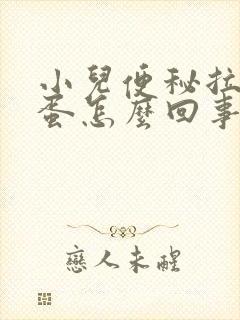 小兒便秘拉
蛋怎麼回事
戀人未醒